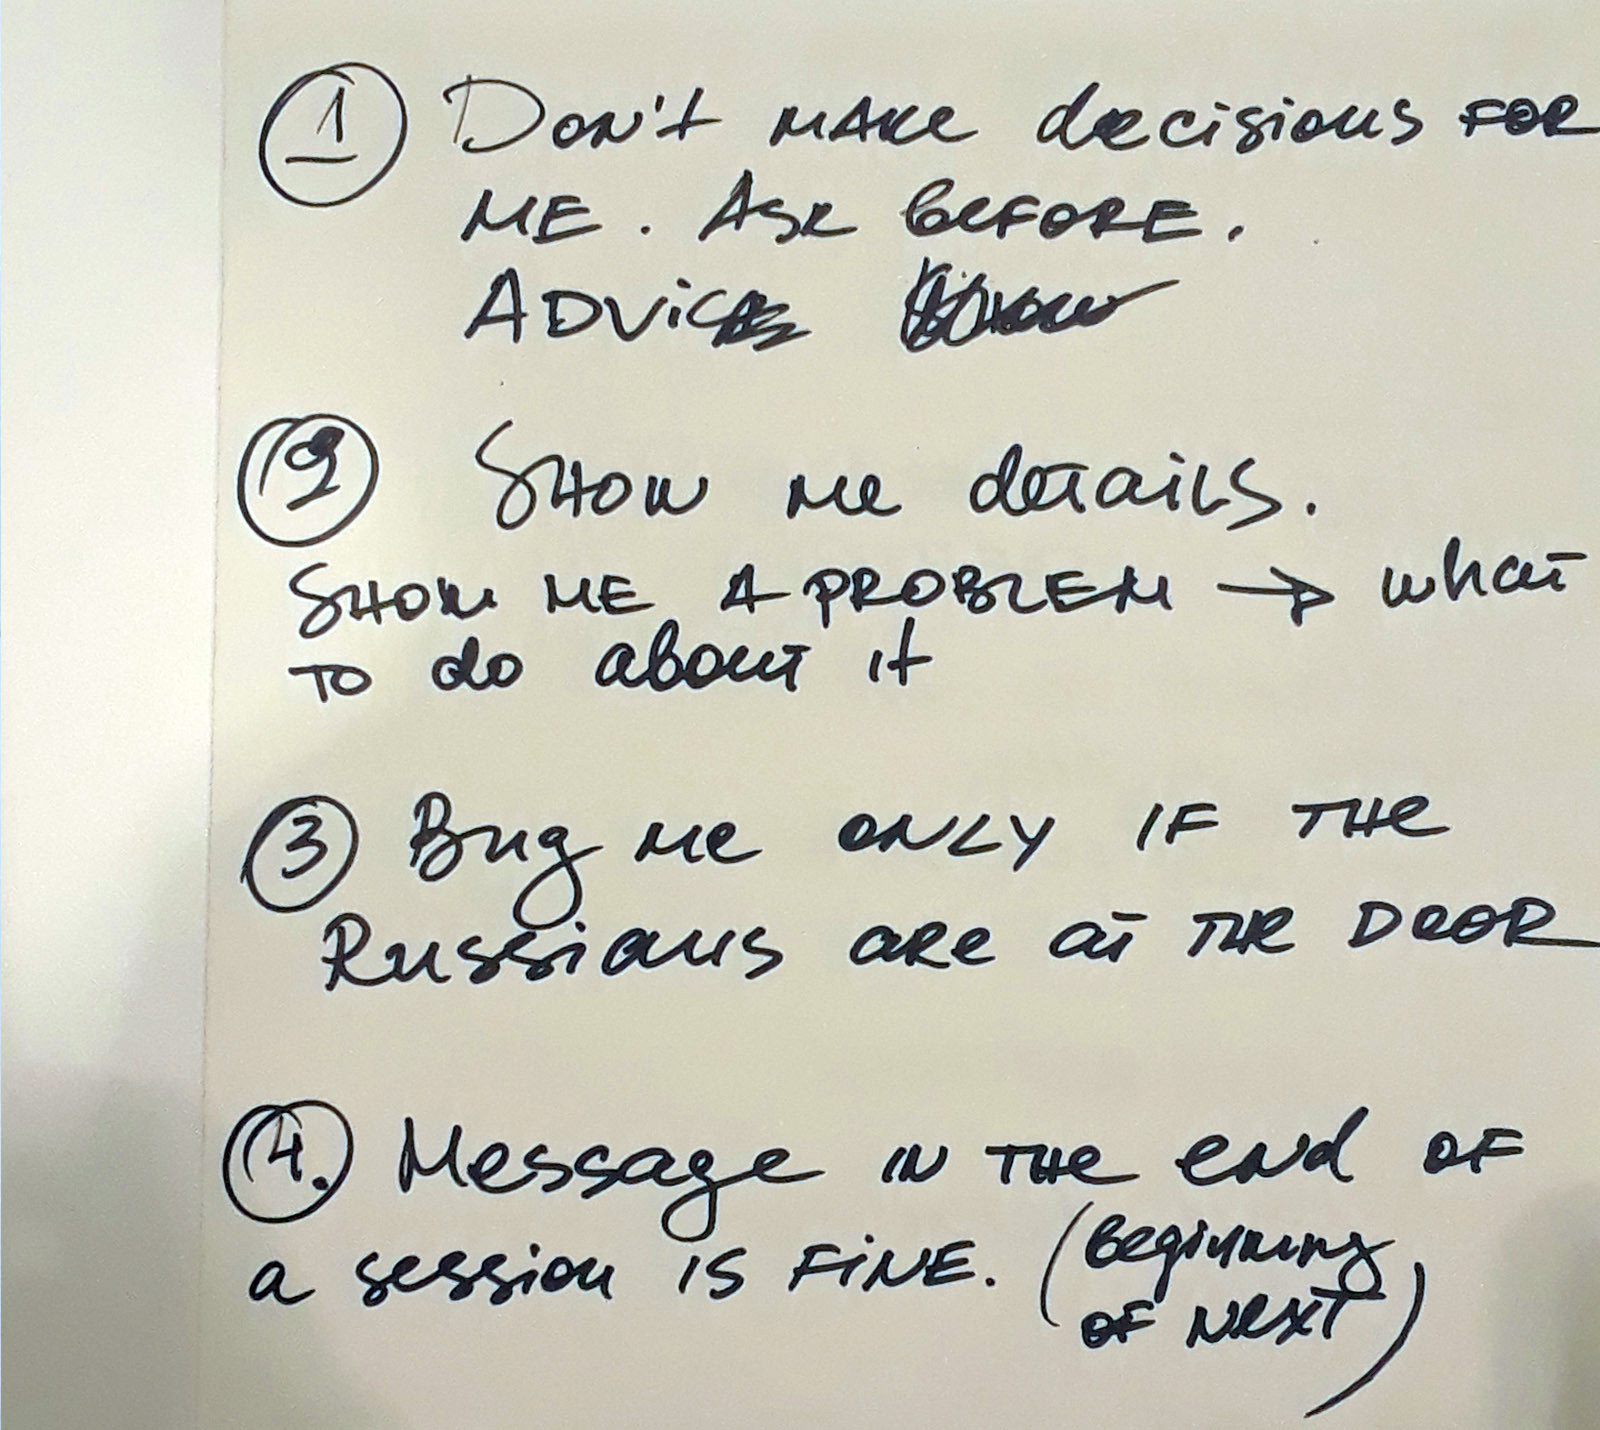 1 Don't make decisions for
me. Ask before.
② Show me details.
Show me a problem → what
to do about it
③ Bug me only if the
Russians are at the door
④. Message in the end of
a session is fine. (Beginning
of next)